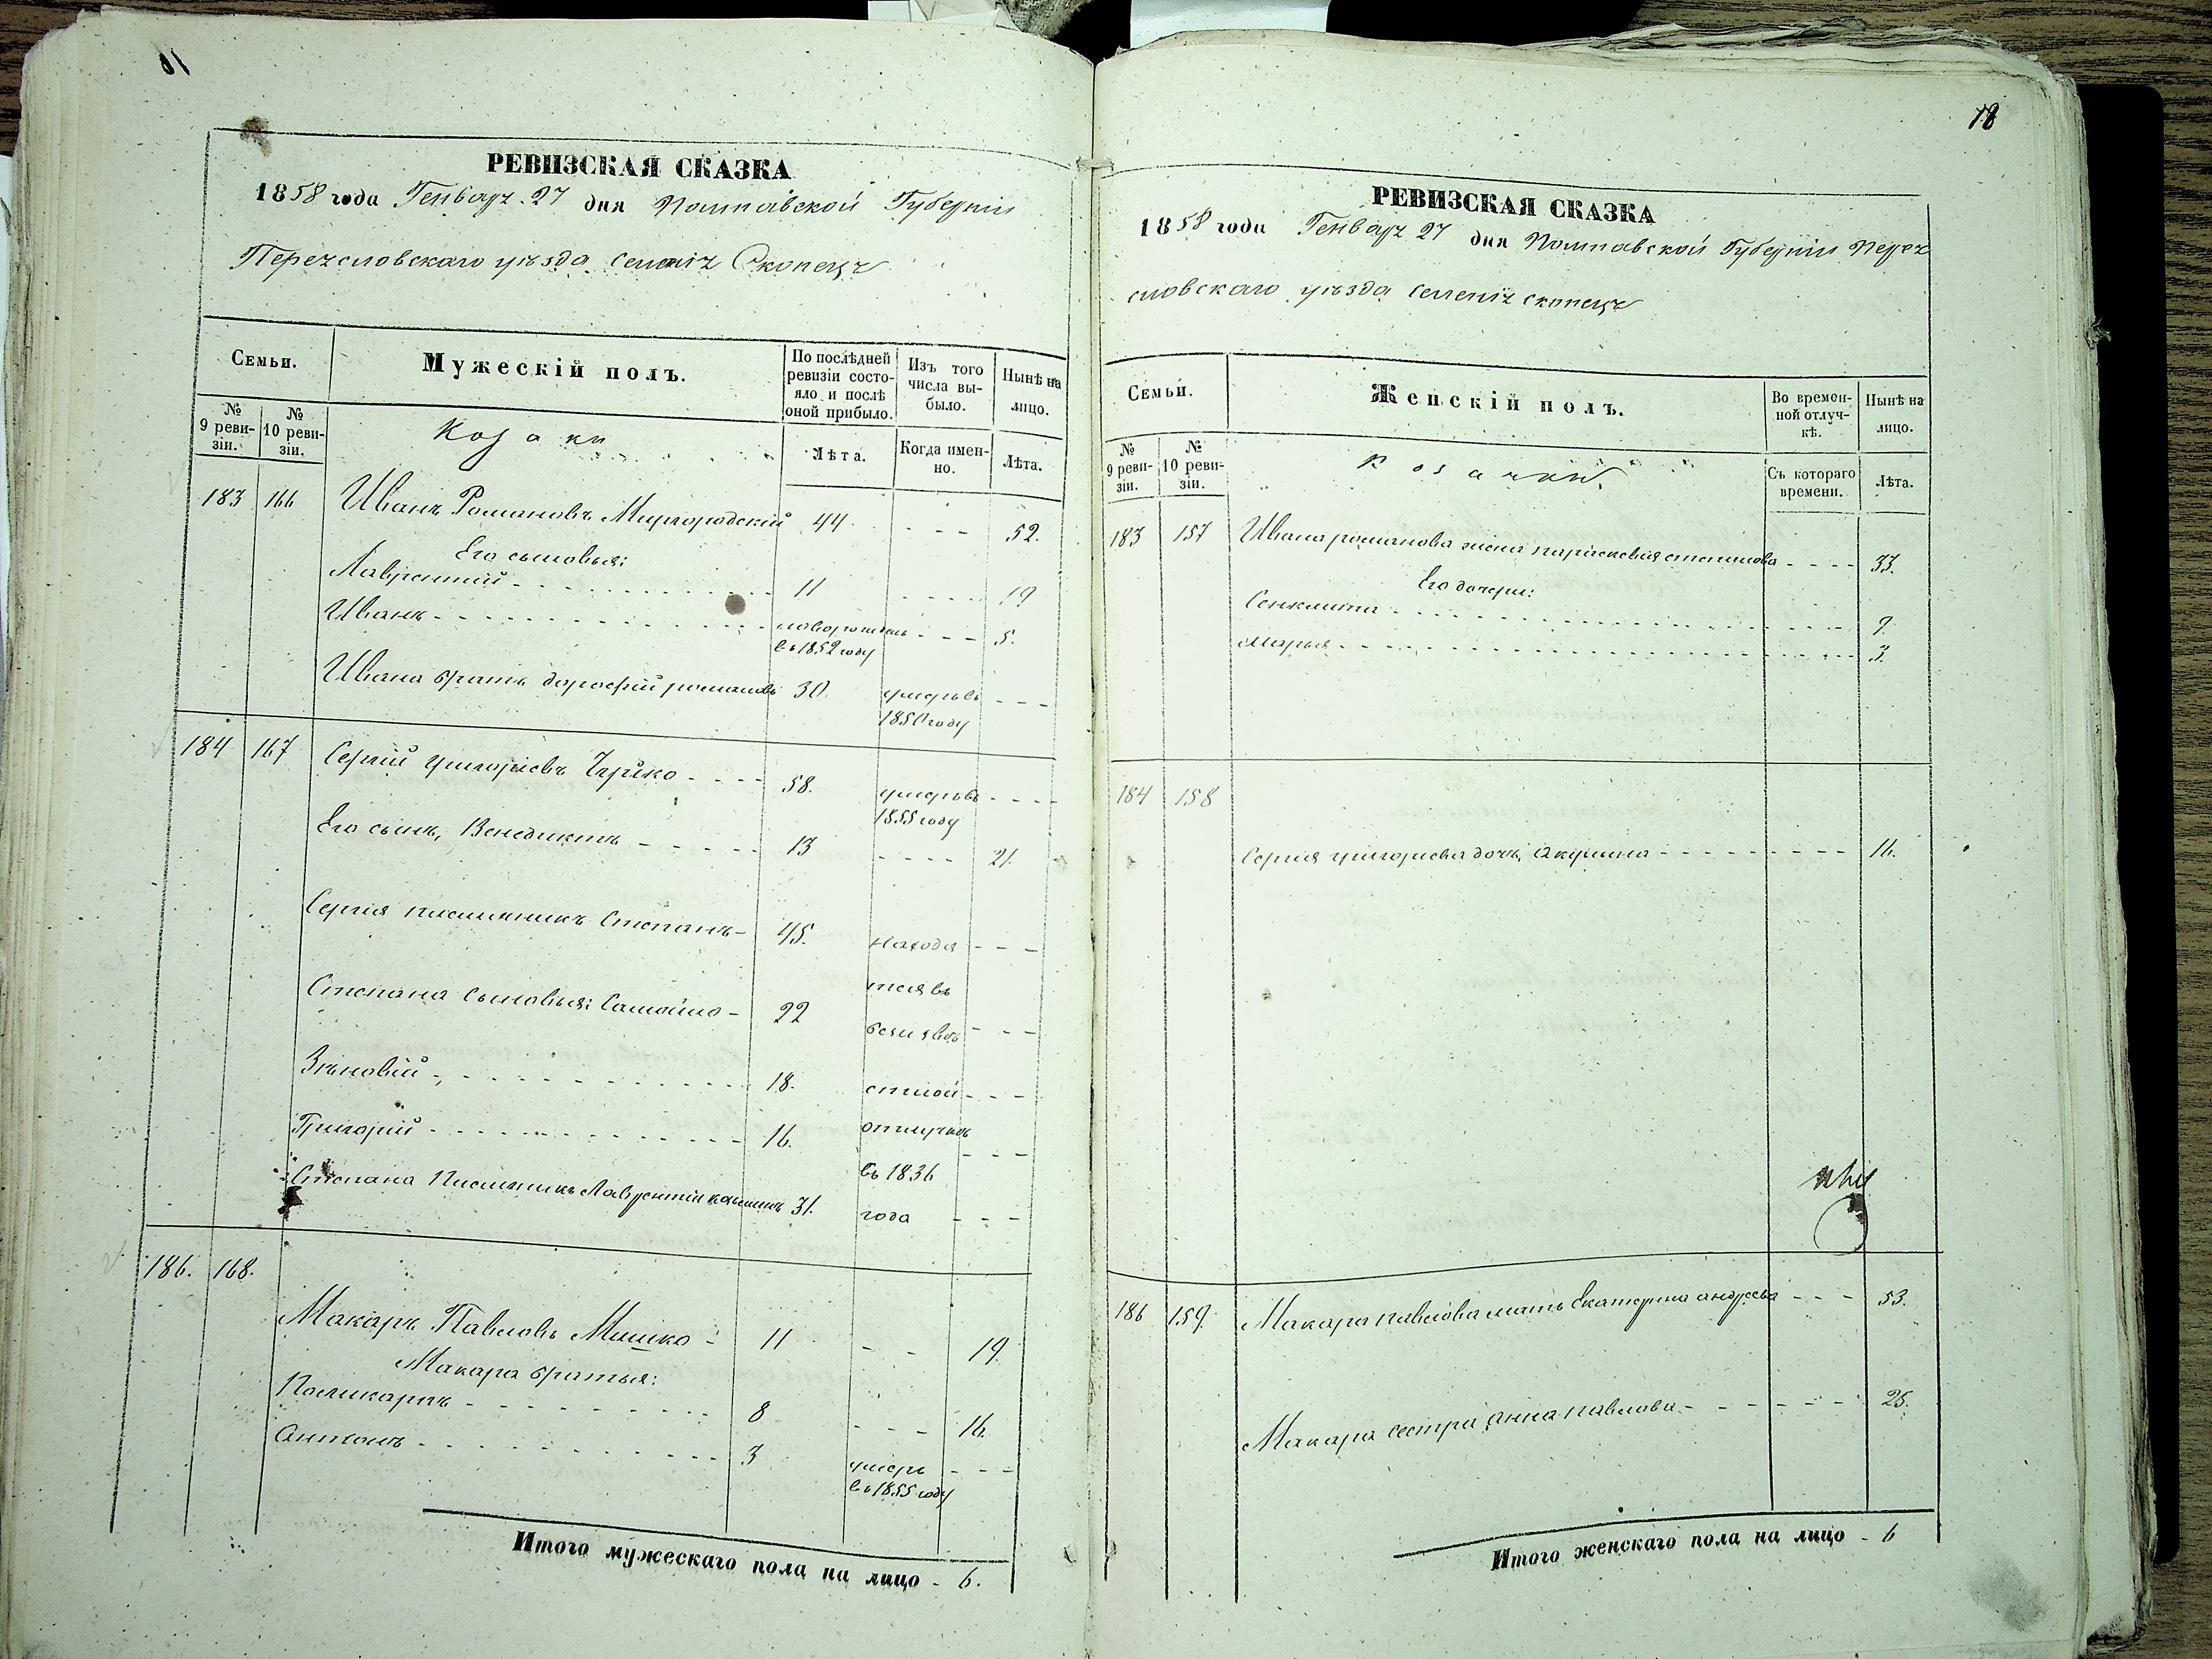 РЕВИЗСКАЯ СКАЗКА
1858 года Генваря 27 дня Полтавской Губерніи
Переяславскаго уѣзда селенія Скопецъ
Семьи.
Мужескій полъ.
По послѣдней ревизіи состояло и послѣ оной прибыло.
Изъ того числа выбыло.
Нынѣ на лицо.
№ 9 ревизіи.
№ 10 ревизіи.
Козаки
Лѣта.
Когда именно.
Лѣта.
183 166 Иванъ Романовъ Миргородскій 44 - - 52.
Его сыновья:
Лаврентій - - - 11 - - - 19
Иванъ - - - новорожден - - - 5.
въ 1852 году
Ивана братъ Дорофій романовъ 30. умеръ въ - - -
1850 году
184 167 Сергій григоріевъ Чуйко - - - - 58. умеръ въ - - - -
1855 году
Его сынъ, Венедиктъ - - - - - 13 - - - - 21.
Сергія племянникъ Степанъ - 45. находя - - -
тся въ
Степана сыновья: Самойло - 22 безизвѣ - - -
Зѣновій - - - 18. стной - - -
Григорій - - - 16. отлучкѣ - - -
въ 1836
Степана Племяникъ Лаврентій 31. года - - -
186. 168.
Макаръ Павловъ Мишко - 11 - - 19.
Макара братья:
Поликарпъ - - - 8 - - - 16.
Антонъ - - - 3 умеръ - - -
въ 1855 году
Итого мужескаго пола на лицо - 6.
18
РЕВИЗСКАЯ СКАЗКА
1858 года Генваря 27 дня Полтавской Губерніи Перея
словскаго уѣзда селенія скопецъ
Семьи.
Женскій полъ.
Во временной отлучкѣ.
Нынѣ на лицо.
№ 9 ревизіи.
№ 10 ревизіи.
Козачки.
Съ котораго времени.
Лѣта.
183 157 Ивана романова жена параскевия степанова - - - - 33.
Его дочери:
Сенклита - - - 9.
Марья - - - 3.
184 158
Сергія григориева дочь, Акулина - - - 16.
186 159. Макара павлова мать Екатерина андреева - - - 53.
Макара сестра анна павлова - - - 25.
Итого женскаго пола на лицо - 6